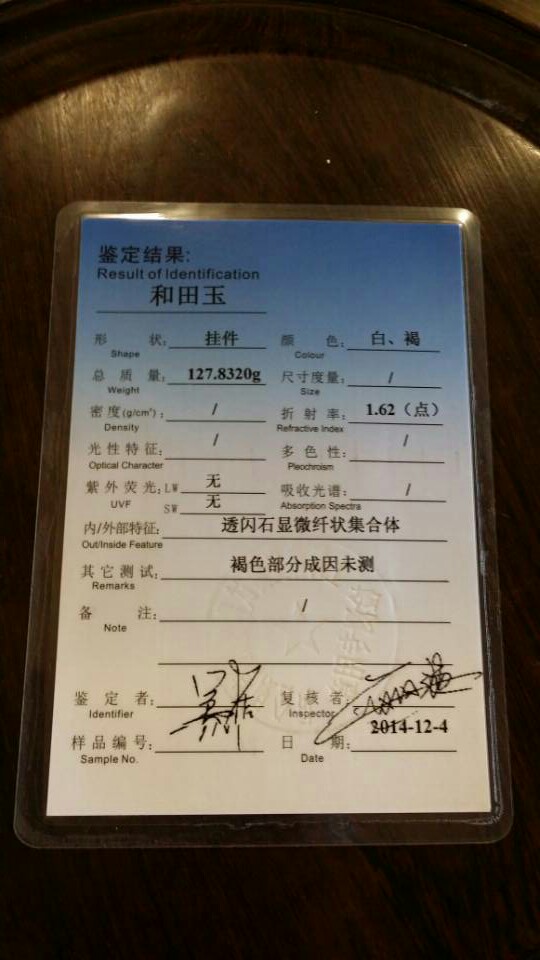 鉴定结果:
Result of Identification
和田玉
形 状: 挂件 颜 色: 白、褐
Shape Colour
总 质 量: 127.8320g 尺寸度量: /
Weight Size
密度(g/cm³): / 折 射 率: 1.62（点）
Density Refractive Index
光性特征: / 多 色 性: /
Optical Character Pleochroism
紫外荧光: LW 无 吸收光谱: /
UVF SW 无 Absorption Spectra
内/外部特征: 透闪石显微纤状集合体
Out/Inside Feature
其它测试: 褐色部分成因未测
Remarks
备 注: /
Note
鉴 定 者: 复 核 者:
Identifier Inspector
样品编号: 日 期: 2014-12-4
Sample No. Date